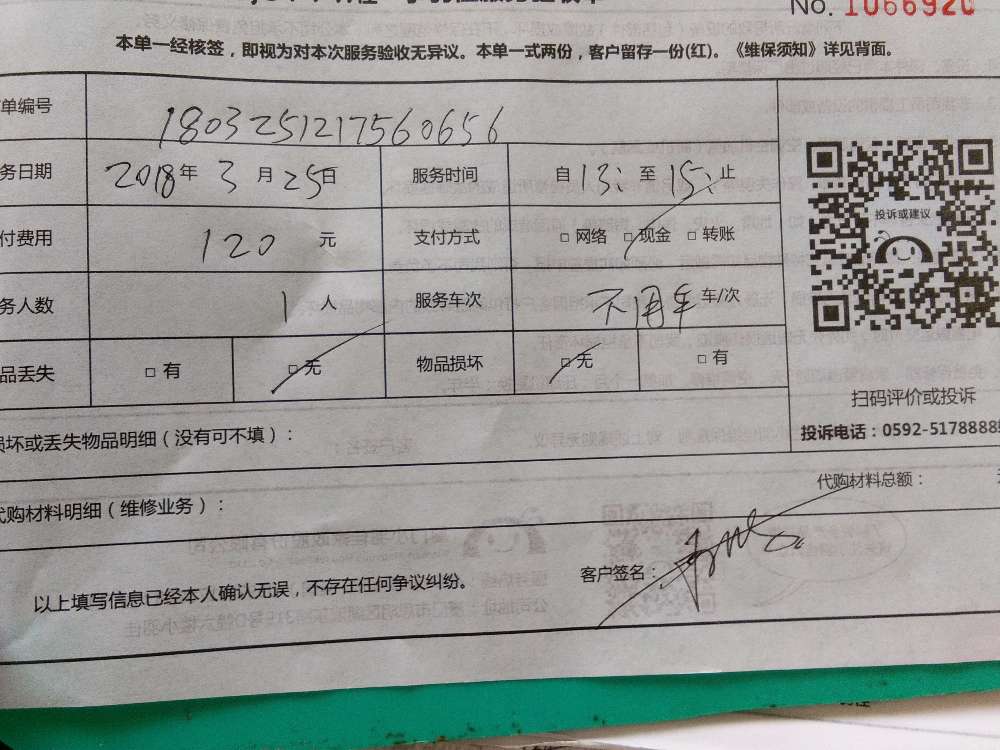 No. 1066920
本单一经核签，即视为对本次服务验收无异议。本单一式两份，客户留存一份(红)。《维保须知》详见背面。
单编号 1803251217560656
务日期 2018年 3 月 25日 服务时间 自 13: 至 15: 止
付费用 120 元 支付方式 □ 网络 □ 现金 □ 转账
投诉或建议
务人数 1 人 服务车次 不用车 车/次
品丢失 □ 有 □ 无 物品损坏 □ 无 □ 有
扫码评价或投诉
投诉电话：0592-5178888
损坏或丢失物品明细（没有可不填）：
代购材料总额：
代购材料明细（维修业务）：
客户签名：
以上填写信息已经本人确认无误，不存在任何争议纠纷。